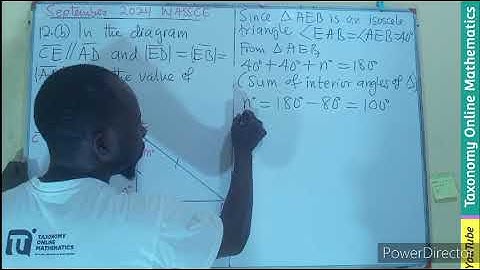 September 2024 WASSCE
12.(b) In the diagram
CE // AD and |ED| = |EB| =
the value of
C
m°
Since △AEB is an isoscele
triangle ∠EAB=∠ABE=40°
From △AEB,
40° + 40° + n° = 180°
(Sum of interior angles of △)
n° = 180° - 80° = 100°
TAXONOMY
ONLINE
MATHEMATICS
YouTube Taxonomy Online Mathematics
PowerDirector